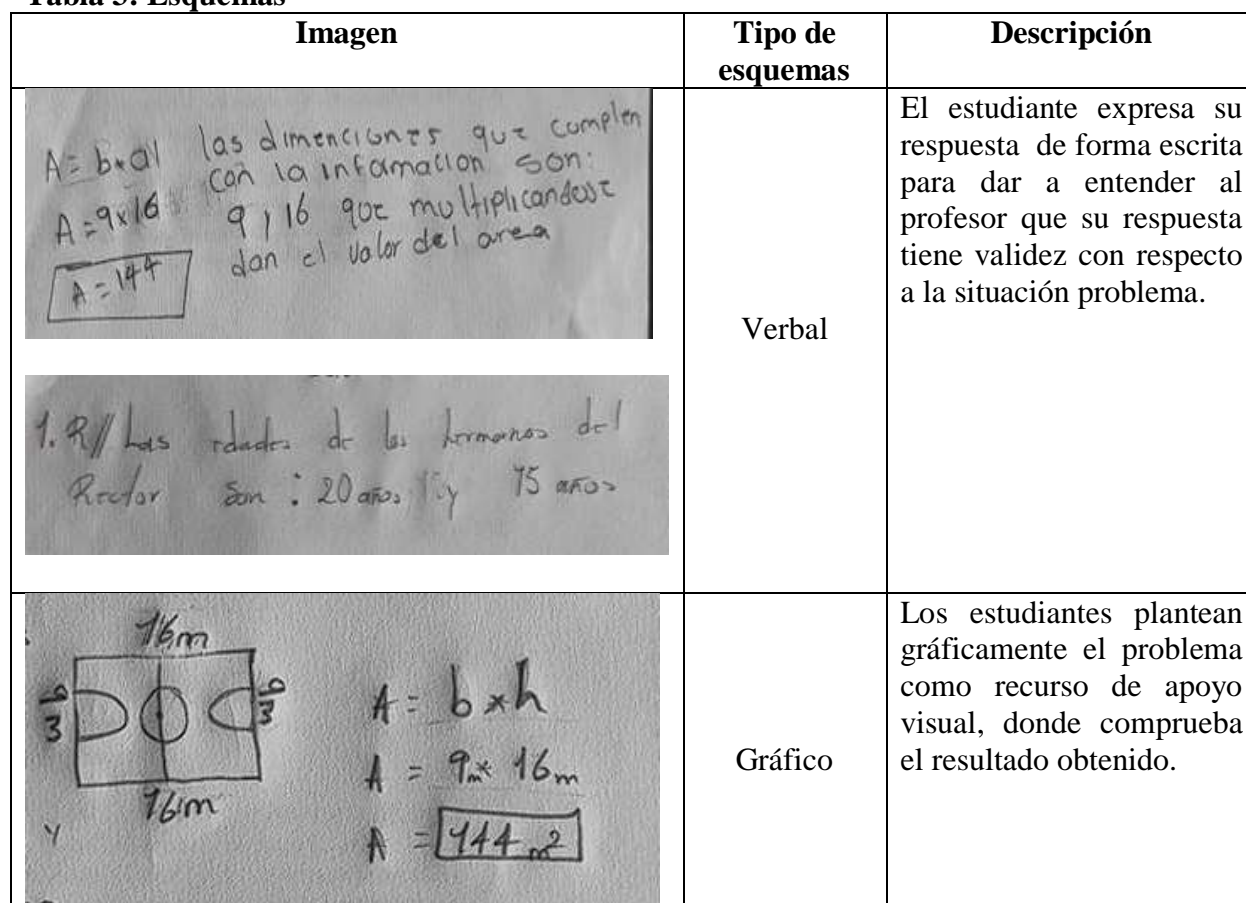 Tabla 3: Esquemas
Imagen
Tipo de
esquemas
Descripción
A = b*al
A = 9x16
A = 144
las dimenciones que complen
con la informacion son:
9 y 16 que multiplicandose
dan el valor del area
1. R// Las edades de los hermanos del
Rector son : 20 años y 15 años
Verbal
El estudiante expresa su
respuesta de forma escrita
para dar a entender al
profesor que su respuesta
tiene validez con respecto
a la situación problema.
16m
9m
9m
16m
y
A = b*h
A = 9m* 16m
A = 144 m2
Gráfico
Los estudiantes plantean
gráficamente el problema
como recurso de apoyo
visual, donde comprueba
el resultado obtenido.